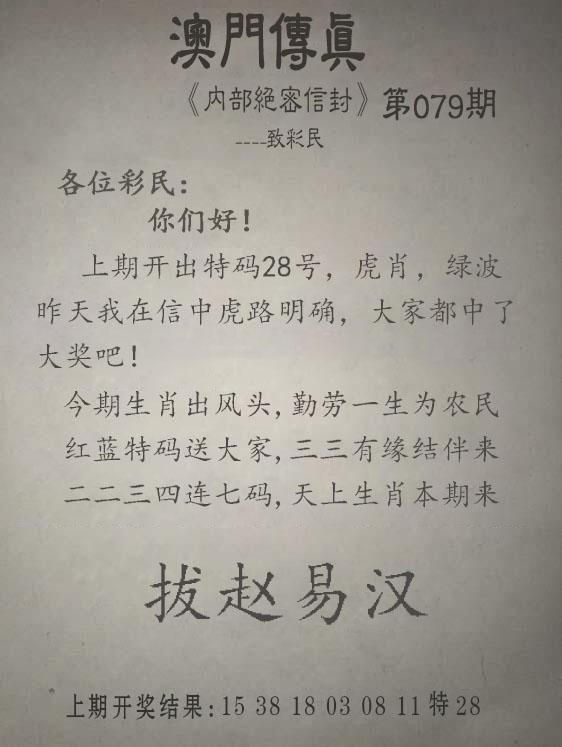 澳門傳眞
《内部絕密信封》第079期
----致彩民
各位彩民：
你们好！
上期开出特码28号，虎肖，绿波
昨天我在信中虎路明确，大家都中了
大奖吧！
今期生肖出风头,勤劳一生为农民
红蓝特码送大家,三三有缘结伴来
二二三四连七码,天上生肖本期来
拔赵易汉
上期开奖结果:15 38 18 03 08 11 特28